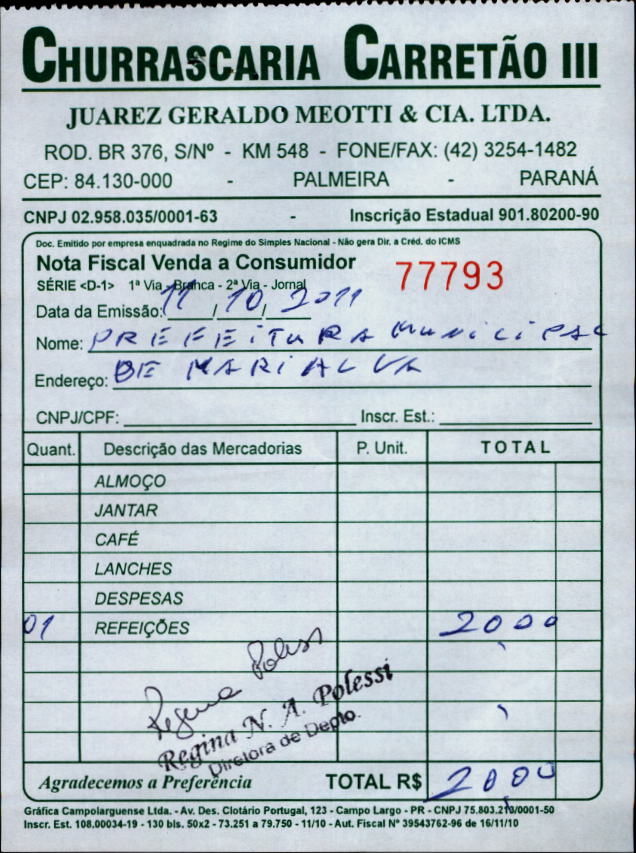 CHURRASCARIA CARRETÃO III
JUAREZ GERALDO MEOTTI & CIA. LTDA.
ROD. BR 376, S/Nº - KM 548 - FONE/FAX: (42) 3254-1482
CEP: 84.130-000 - PALMEIRA - PARANÁ
CNPJ 02.958.035/0001-63 - Inscrição Estadual 901.80200-90
Doc. Emitido por empresa enquadrada no Regime do Simples Nacional - Não gera Dir. a Créd. do ICMS
Nota Fiscal Venda a Consumidor 77793
SÉRIE <D-1> 1ª Via - Branca - 2ª Via - Jornal
Data da Emissão: 11 / 10 / 2011
Nome: PREFEITURA MUNICIPAL
Endereço: DE MARIALVA
CNPJ/CPF: Inscr. Est.:
Quant. Descrição das Mercadorias P. Unit. TOTAL
ALMOÇO
JANTAR
CAFÉ
LANCHES
DESPESAS
01 REFEIÇÕES 20 00
Regina Polessi
Regina N. A. Polessi
Diretora de Depto.
Agradecemos a Preferência TOTAL R$ 20 00
Gráfica Campolarguense Ltda. - Av. Des. Clotário Portugal, 123 - Campo Largo - PR - CNPJ 75.803.219/0001-50
Inscr. Est. 108.00034-19 - 130 bls. 50x2 - 73.251 a 79.750 - 11/10 - Aut. Fiscal Nº 39543762-96 de 16/11/10